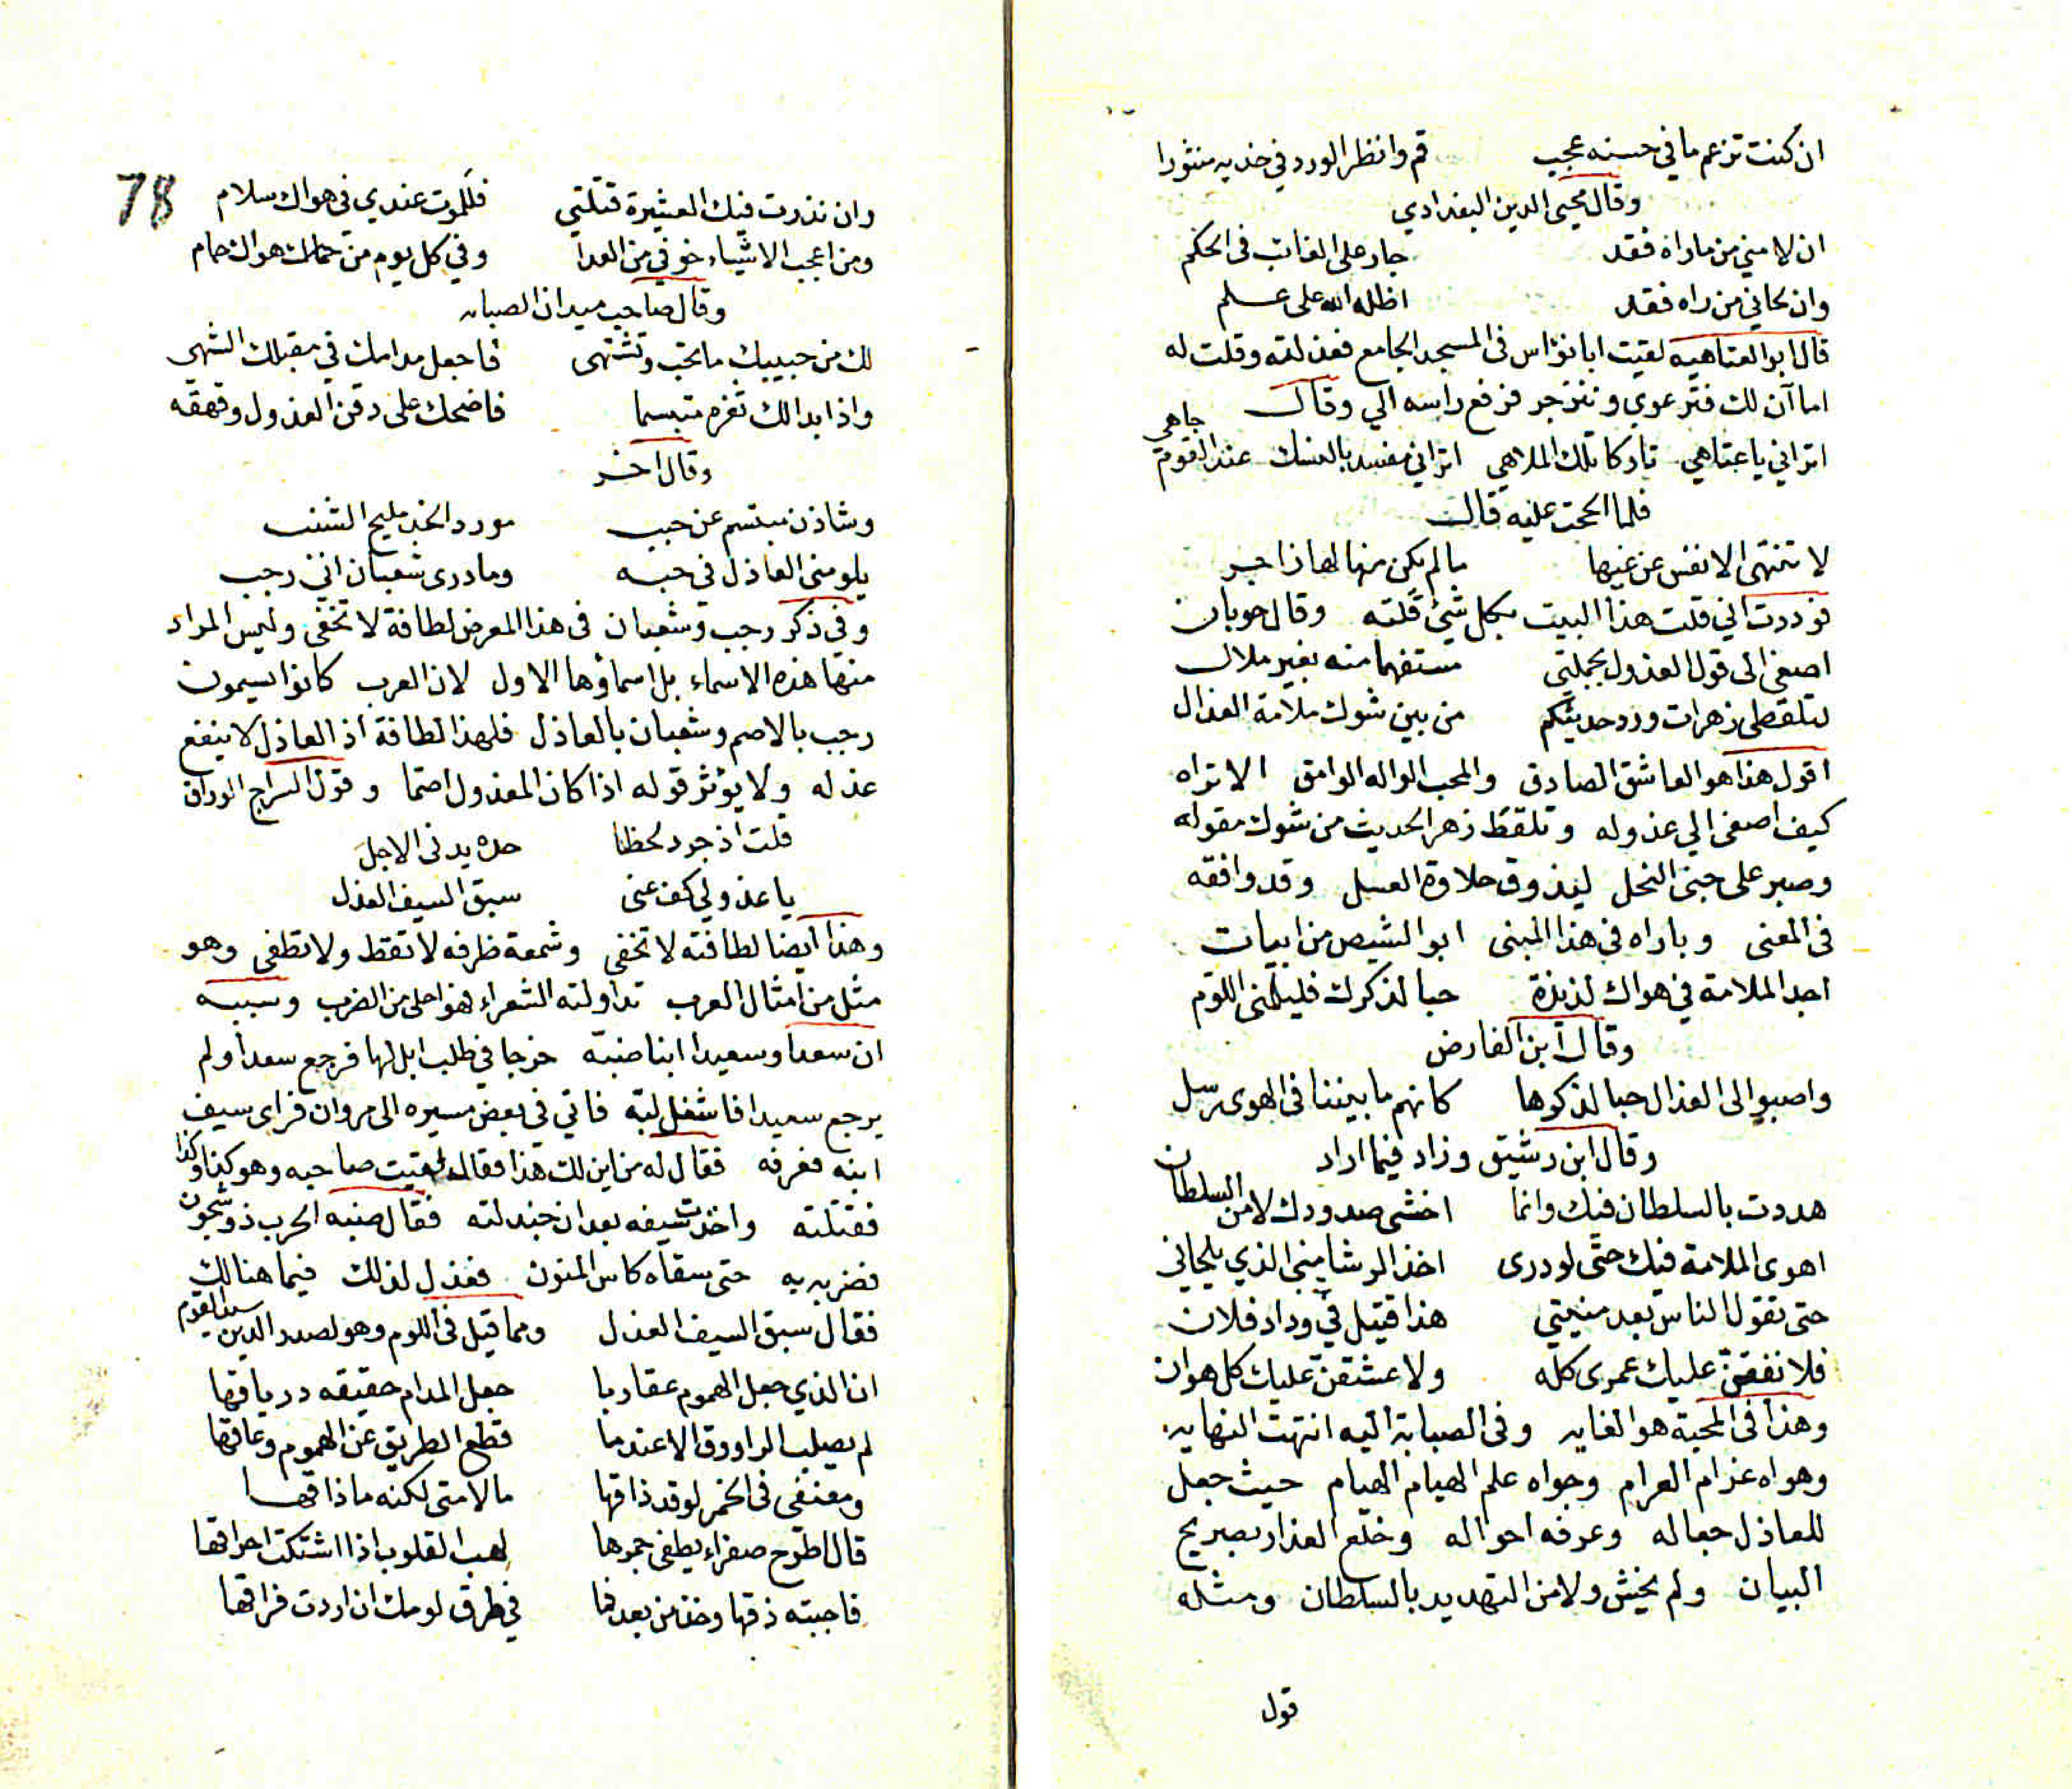 ان كنت تزعم ما في حسنه عجب قم وانظر الورد في خديه منثورا
وقال محيي الدين البغدادي
ان لامني من ماراه فقد جار على الغائب في الحكم
وان لحاني من راه فقد اظله الله على علم
قال ابو العتاهيه لقيت ابا نواس في المسجد الجامع فعذلته وقلت له
اما آن لك فترعوي وتنزجر فرفع راسه الي وقال
اتراني يا عتاهي تاركا تلك الملاهي اتراني مفسد بالنسك عند القوم جاهي
فلما الححت عليه قال
لا تنتهى الانفس عن غيها ما لم يكن منها لها زاجر
فوددت اني قلت هذا البيت بكل شيئ قلته وقال حوبان
اصغى الى قول العذول بجملتي مستفهما منه بغير ملال
لتلقطى زهرات ورد حديثكم من بين شوك ملامة العذال
اقول هذا هو العاشق الصادق والمحب الواله الوامق الا تراه
كيف اصغى الي عذوله وتلقط زهر الحديث من شوك مقوله
وصبر على جنى النحل ليذوق حلاوة العسل وقد وافقه
في المعنى وباراه في هذا المبنى ابو الشيص من ابيات
اجد الملامة في هواك لذيذة حبا لذكرك فليلمنى اللوم
وقال ابن الفارض
واصبو الى العذال حبا لذكرها كانهم ما بيننا في الهوى رسل
وقال ابن رشيق وزاد فيما اراد
هددت بالسلطان فيك وانما اخشى صدودك لا من السلطان
اهوى الملامة فيك حتى لو درى اخذ الرشا مني الذي يلحاني
حتى تقول الناس بعد منيتي هذا قتيل في وداد فلان
فلا نفقنّ عليك عمرى كله ولا عشقنّ عليك كل هوان
وهذا في المحبة هو الغايه وفي الصبابة اليه انتهت النهايه
وهواه غرام الغرام وجواه علم الهيام الهيام حيث جعل
للعاذل جعاله وعرفه احواله وخلع العذار بصريح
البيان ولم يخش ولا من التهديد بالسلطان ومثله
قول
78
وان نذرت فيك العشيرة قتلتي فللموت عندي في هواك سلام
ومن اعجب الاشياء خوفي من العدا وفي كل يوم من حماك هواك حمام
وقال صاحب ميدان الصبابه
لك من حبيبك ما تحب وتشتهى فاجعل مدامك في مقبلك الشهى
واذا بدا لك ثغره متبسما فاضحك على دقن العذول وقهقه
وقال اخر
وشاذن مبتسم عن حبب مورد الخد مليح الشنب
يلومنى العاذل في حبه وما درى شعبان اني رجب
وفي ذكر رجب وشعبان في هذا المعرض لطافة لا تخفى وليس المراد
منها هذه الاسماء بل اسماؤها الاول لان العرب كانوا يسمون
رجب بالاصم وشعبان بالعاذل فلهذا لطافة اذ العاذل لا ينفع
عذله ولا يؤثر قوله اذا كان المعذول اصما وقول السراج الوراق
قلت اذ جود لحظا حده يدنى الاجل
يا عذولي كف عنى سبق السيف العذل
وهذا ايضا لطافته لا تخفى وشمعة ظرفه لا تقط ولا تطفى وهو
مثل من امثال العرب تداولته الشعراء فهو احلى من الضرب وسببه
ان سعدا وسعيدا ابنا ضبة خرجا في طلب ابل لها فرجع سعدا ولم
يرجع سعيدا فاشغل لبه فاتي في بعض مسيره الى مروان فراى سيف
ابنه فعرفه فقال له من اين لك هذا فقال له لقيت صاحبه وهو كذا وكذا
فقتلته واخذت سيفه بعد ان جندلته فقال ضبه الحرب ذو شجون
فضربه به حتى سقاه كاس المنون فعذل لذلك فيما هنالك
فقال سبق السيف العذل ومما قيل في اللوم وهو لصدر الدين سيد القوم
ان الذي جعل الهموم عقاربا جعل المدام حقيقه درياقها
لم يصلب الراووق الا عندما قطع الطريق عن الهموم وعاقها
ومعنفى في الخمر لو قد ذاقها ما لامتى لكنه ما ذاقها
قال اطرح صفراء يطفى جمرها لهب القلوب اذا اشتكت احراقها
فاجبته ذقها وخذ من بعد فما في طرق لومك ان اردت فراقها